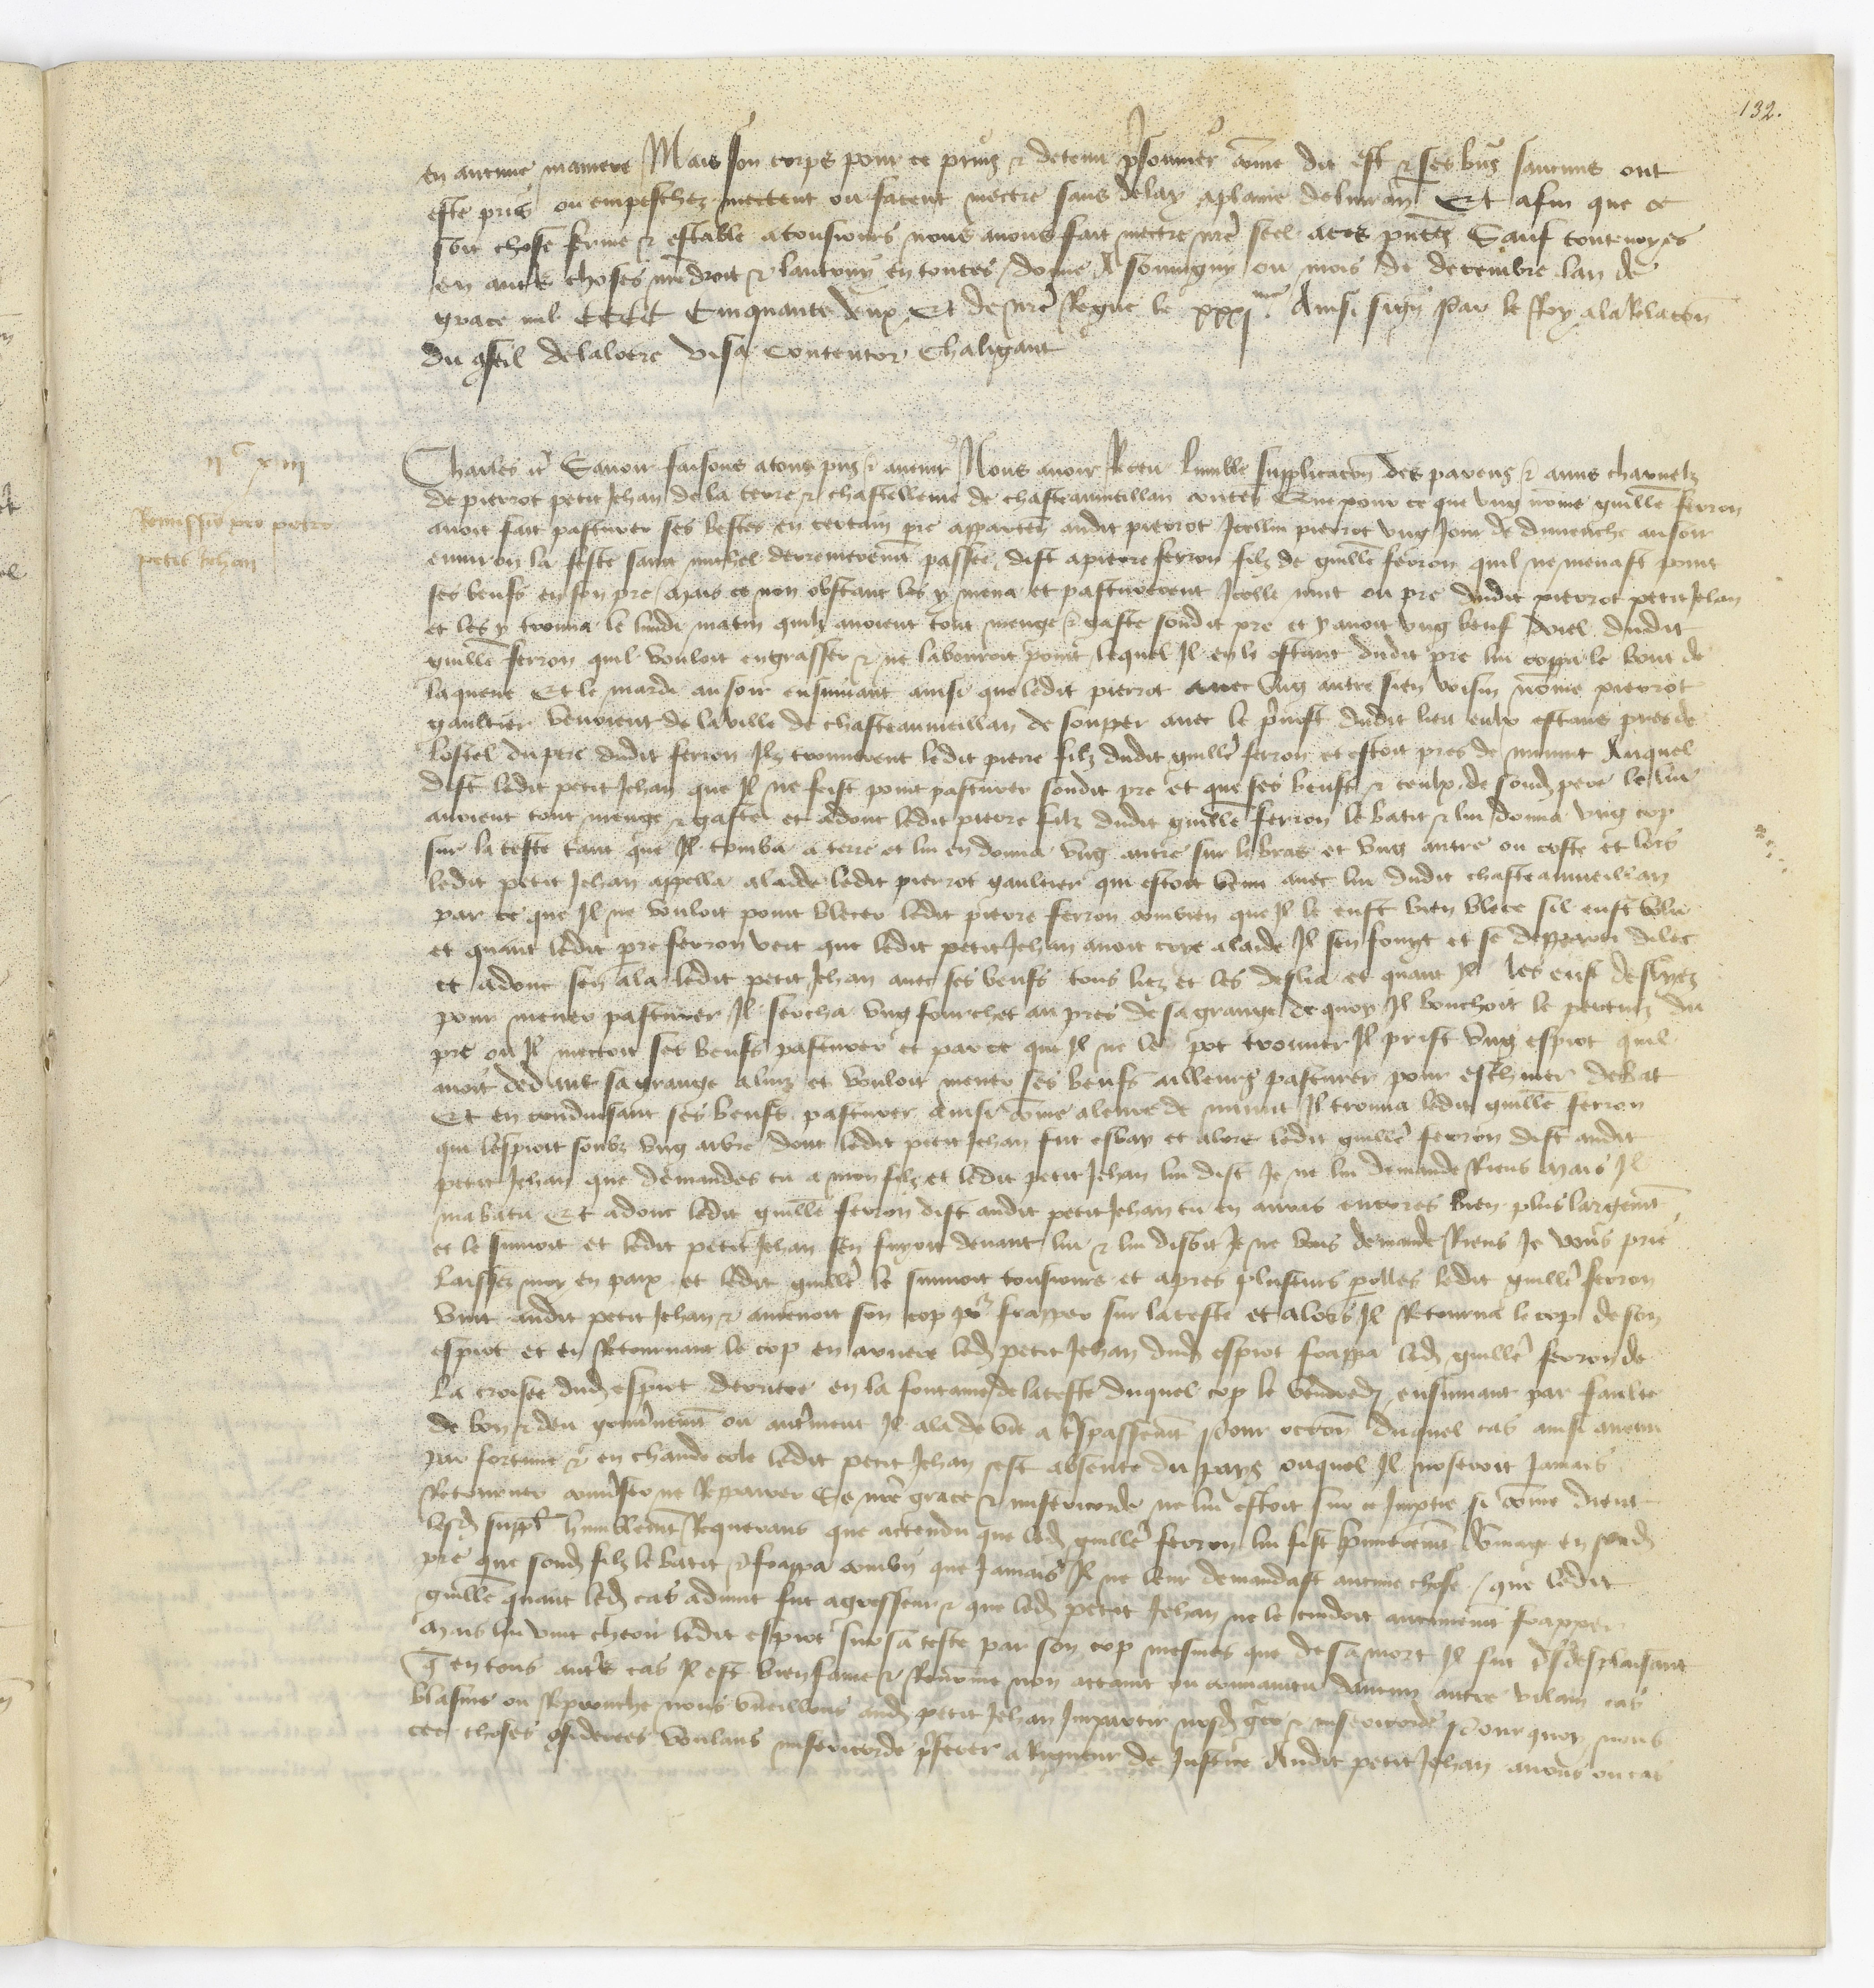 132.
en aucune maniere Mais son corps pour ce prins & detenu prisonnier comme dit est & ses biens saucuns ont
esté pris ou empeschez mectent ou facent mectre sans delay a plaine delivrance Et afin que ce
soit chose ferme & estable a tousiours nous avons fait mectre nre seel a ces pntes Sauf toutesvoyes
en autres choses nre droit & lautruy en toutes donne A souvigny ou mois de decembre lan de
grace mil CCCC Cinquante deux Et de nre Regne le xxxj me Ainsi signé Par le Roy a la Relacion
du conseil delaloere visa contentor Chaligant
ijC xiij
Remissio pro petro
petit Jehan
Charles etc Savoir faisons a tous pns & avenir Nous avoir Receu lumble supplicacion des parens & amis charnelz
de pierrot petit Jehan de la terre & chastellenie de chasteaumeillan conten Que pour ce que ung nomé guillé ferron
avoit fait pasturer ses bestes en certain pré apparten audit pierrot Icellui pierrot ung Jour de dimenche au soir
environ la feste saint michel derrenierement passée dist a pierre ferron filz de guillé ferron quil ne menast point
ses beufs en son pre Mais ce non obstant les y mena et pasturerent Icelle nuit ou pre dudit pierrot petit Jehan
et les y trouva le lundi matin quilz avoient tout mengé & gasté sondit pre et y avoit ung beuf dudit
guillé ferron quil vouloit engresser & ne labouroit point lequel Il en ostant dudit pre lui coppa le bout de
la queue Et le mardi au soir ensuivant ainsi que ledit pierrot avec ung autre sien voisin nomé pierrot
gaultier venoient de la ville de chasteaumeillan de souper avec le prevost dudit lieu eulx estans pres de
lostel du pere dudit ferron Ilz trouverent ledit pierre filz dudit guillé ferron et estoit pres de minuit Auquel
dist ledit petit Jehan que Il ne feist point pasturer sondit pre et que ses beufs & ceulx de sond pere le lui
avoient tout mengé & gasté et adonc ledit pierre filz dudit guillé ferron le batit & lui donna ung cop
sur la teste tant que Il tomba a terre et lui en donna ung autre sur le bras et ung autre ou costé et lors
ledit petit Jehan appella a laide ledit pierrot gaultier qui estoit venu avec lui dudit chasteaumeillan
par ce que Il ne vouloit point blecer ledit pierre ferron combien que Il le eust bien blece sil eust volu
et quant ledit pre ferron veit que ledit petit Jehan avoit crye a laide Il sen fouyt et se departi dilec
et adonc sen ala ledit petit Jehan avec ses beufs tous liez et les deslia et quant Il les eust desliez
pour mener pasturer Il sercha ung fourchet au pres de sa grange de quoy Il bouchoit le pertuiz du
pre ou Il mectoit ses beufs pasturer et par ce que Il ne le pot trouver Il prist ung espiot quil
avoit dedans sa grange et vouloit mener ses beufs ailleurs pasturer pour eschiver debat
Et en conduisant ses beufs pasturer ainsi comme a leure de minuit Il trouva ledit guillé ferron
qui lespioit soubz ung arbre dont ledit petit Jehan fut esbay et alors ledit guillé ferron dist audit
petit Jehan que demandes tu a mon filz et ledit petit Jehan lui dist Je ne lui demande Riens mais Il
ma batu Et adonc ledit guillé ferron dist audit petit Jehan tu en auras encores bien plus largement
et le suivoit et ledit petit Jehan sen fuyoit devant lui & lui disoit Je ne vous demande Riens Je vous prie
laissez moy en paix et ledit guillé le suivoit tousiours et apres plusieurs parolles ledit guillé ferron
vint audit petit Jehan & amenoit son cop pour frapper sur la teste et alors Il Retourna le cop de son
espiot et en Retournant le cop en arriere led petit Jehan dud espiot frappa led guillé ferron de
la croisee dud espiot derriere en la fontaine de la teste duquel cop le vendredi ensuivant par faulte
de bon & deu gouvernement ou autrement Il ala de vie a trespassement Pour occasion duquel cas ainsi avenu
par fortune & en chaude cole ledit petit Jehan sest absenté du pays ouquel Il noseroit Jamais
Retourner converser ne Repparer Se nre grace & misericorde ne lui estoit sur ce Impartie si comme dient
lesd suppl humblement Requerans que actendu que led guillé ferron lui fist premierement domage en sond
pré que sond filz le batit & frappa combien que Jamais Il ne leur demandast aucune chose / que ledit
guillé quant led cas advint fut agresseur & que led petit Jehan ne le cuidoit aucunement frapper
Mais lui vint cheoir ledit espiot sur sa teste par son cop mesmes que de sa mort Il fut desplaisant
Qen tous autres cas Il est bien famé & Renommé non actaint ou convaincu daucun autre vilain cas
blasme ou Reprouche nous vueillons aud petit Jehan Impartir nosd grace & misericorde Pourquoy nous
ces choses considerees voulans misericorde preferer a Rigueur de Justice Audit petit Jehan avons ou cas